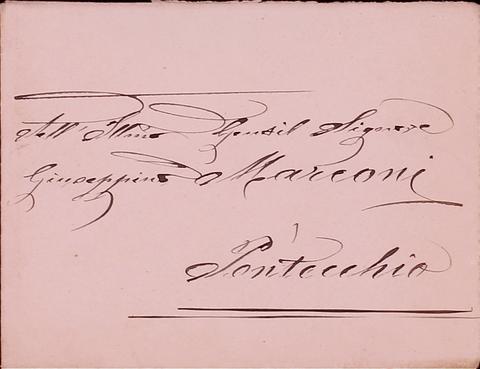 All' Illmo Gentil Signore
Giuseppino Marconi
Pontecchio